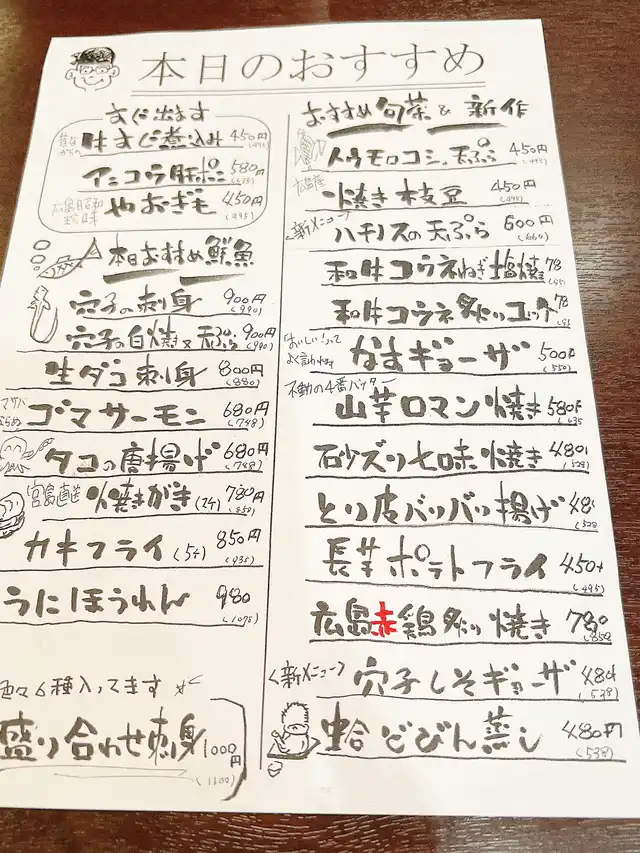 本日のおすすめ
すぐ出ます
昔ながらの
牛すじ煮込み 450円
(495)
アンコウ肝ポン 580円
(638)
広島昭和
やおぎも 450円
(495)
本日おすすめ鮮魚
穴子の刺身 900円
(990)
穴子の白焼き又天ぷら 900円
(990)
生ダコ刺身 800円
(880)
ゴマサーモン 680円
(748)
タコの唐揚げ 680円
(748)
宮島直送
焼きがき(2ケ) 780円
(858)
カキフライ(5ケ) 850円
(935)
うにほうれん 980
(1078)
色々6種入ってます
盛り合わせ刺身 1000円
(1100)
おすすめ旬菜 & 新作
トウモロコシ天ぷら 450円
(495)
広島産
焼き枝豆 450円
(495)
<新メニュー>
ハチノスの天ぷら 600円
(660)
和牛コウネねぎ塩焼き 78
和牛コウネ炙りユッケ 78
「おいしい!」って
よく言われます
なまギョーザ 500円
(550)
不動の4番バッター
山芋ロマン焼き 580円
(638
砂ズリ七味焼き 480
(528)
とり皮バリバリ揚げ 48
(528
長芋ポテトフライ 450
(495)
広島赤鶏炙り焼き 780
(858
<新メニュー>
穴子しそギョーザ 48
(538)
蛤どびん蒸し 480円
(538)